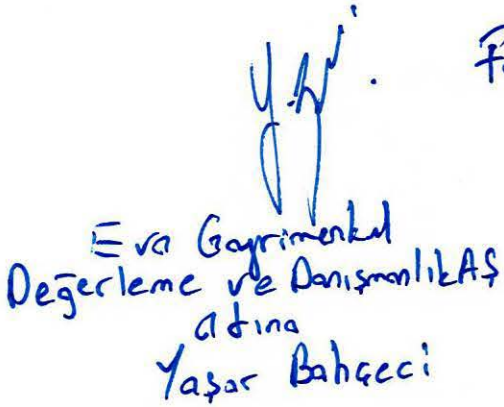 Eva Gayrimenkul
Değerleme ve Danışmanlık AŞ
adına
Yaşar Bahçeci